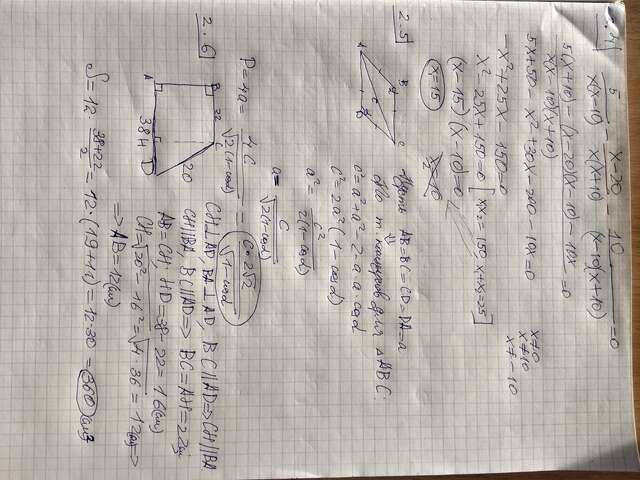 .4
5/x(x-10) - x-20/x(x+10) - 10/(x-10)(x+10) = 0
5(x+10) - (x-20)(x-10) - 10x / x(x-10)(x+10) = 0
x≠0
x≠10
x≠-10
5x+50 - x²+30x-200 - 10x=0
-x²+25x-150=0
x²-25x+150=0 [x₁x₂=150, x₁+x₂=25]
(x-15)(x-10)=0
x=15
2.5
A B C
AB=BC=CD=DA=a
По т. косинусов для △ABC:
c²=a²+a²-2·a·a·cosα
c²=2a²(1-cosα)
a²= c²/2(1-cosα)
a= c/√2(1-cosα)
P=4a= 4c/√2(1-cosα) = c·2√2/√1-cosα
2.6
B 22 C
20
A 38 H D
CH⊥AD, BA⊥AD, BC||AD=>CH||BA
CH||BA, BC||AD=>BC=AH=22
AB=CH; HD=38-22=16(см)
CH=√20²-16²=√4·36=12(см)=>
=>AB=12(см)
S=12·38+22/2=12·(19+11)=12·30=360